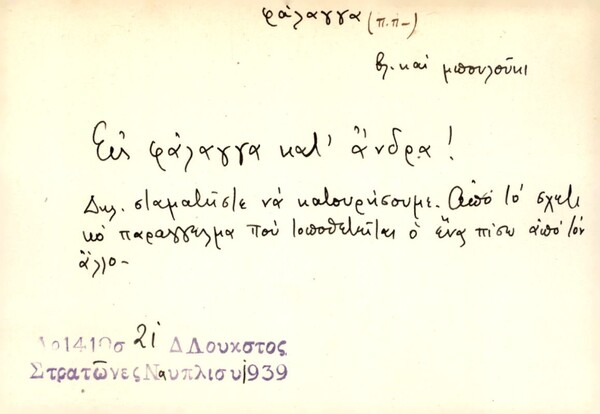 φάλαγγα (π.π-)
βλ. και μπουλούκι
Εις φάλαγγα κατ' άνδρα!
Δηλ. σταματήστε νά κατουρήσουμε. Από τό σχετι
κό παράγγελμα πού τοποθετείται ο ένας πίσω από τόν
άλλο-
21 Δ Λουκστος
Στρατῶνες Ναυπλισυ 1939